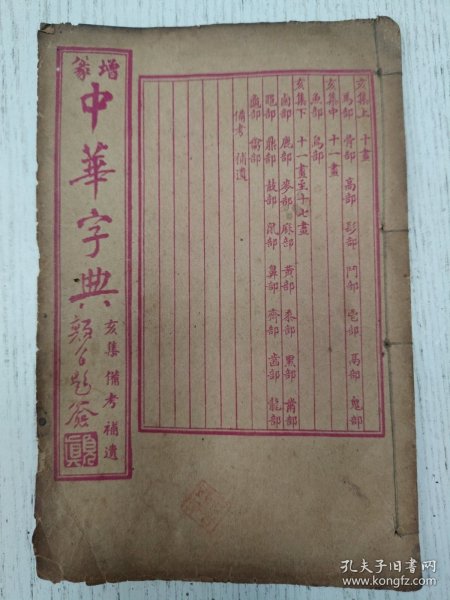 亥集上 十畫
馬部 骨部 高部 髟部 鬥部 鬯部 鬲部 鬼部
亥集中 十一畫
魚部 鳥部
亥集下 十一畫至十七畫
鹵部 鹿部 麥部 麻部 黃部 黍部 黑部 黹部
黽部 鼎部 鼓部 鼠部 鼻部 齊部 齒部 龍部
龜部 龠部
備考 補遺
增篆
中華字典
亥集 備考 補遺
孔夫子旧书网
www.kongfz.com